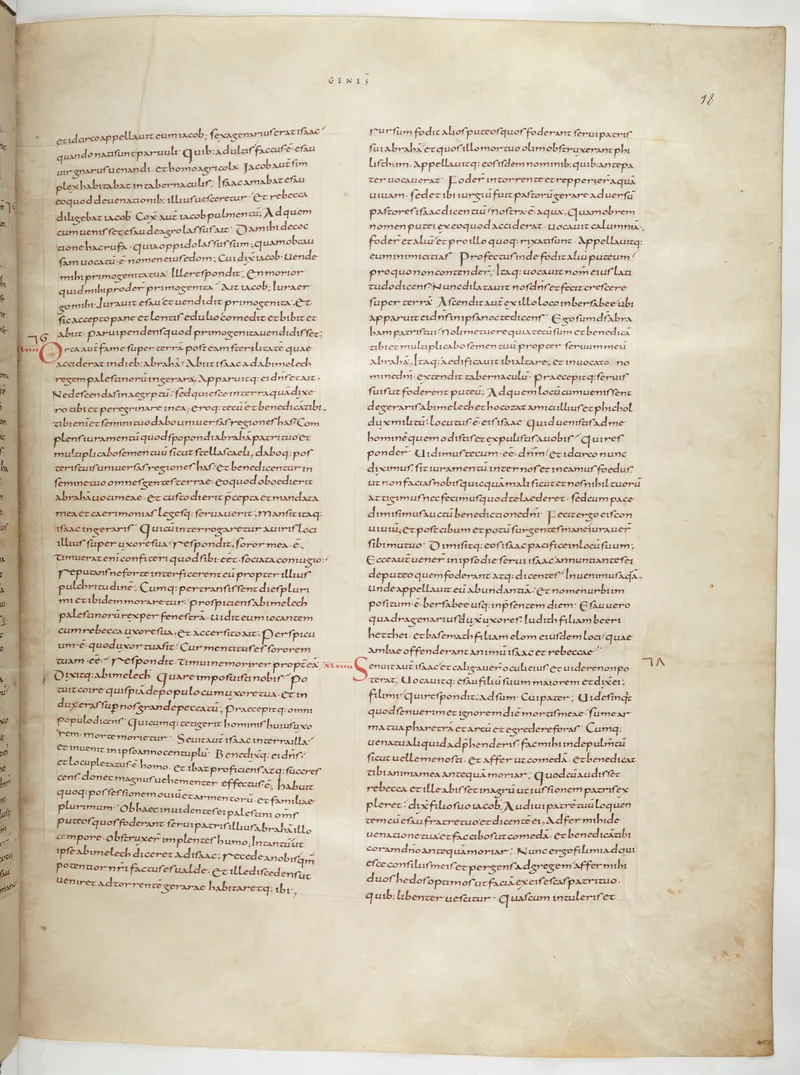 GENIS̄
18
et idcirco appellauit eum iacob; sexagenarius erat isaac
quando nati sunt paruuli· Quib: adultis factus ē esau
uir gnarus uenandi· et homo agricola· Jacob aūt sim
plex habitabat in tabernaculis; Isaac amabat esau
eo quod de uenationib: illius uesceretur· Et rebecca
diligebat iacob· Coxit aūt iacob pulmentū; Ad quem
cum uenisset esau de agro lassus ait· Da mihi de coc
tione hac rufa· quia oppido lassus sum; quam ob cau
sam uocatū ē nomen eius edom; Cui dixit iacob· Uende
mihi primogenita tua· Ille respondit; En morior
quid mihi proder primogenita· Ait iacob; Iura er
go mihi· Iurauit esau et uendidit primogenita· Et
sic accepto pane et lentis edulio comedit et bibit et
abiit· paruipendens quod primogenita uendidisset;
Orta aūt fame super terrā post eam sterilitatē quae
acciderat in dieb: abrahā· Abiit isaac ad abimelech
regem palestinorū in gerara; Apparuitq: ei dn̄s et ait·
Ne descendas in aegyptū· sed quiesce in terra quā dixe
ro tibi et peregrinare in ea; eroq: tecū et benedicā tibi·,
tibi enī et semini tuo dabo uniuersas regiones has· Com
plens iuramentū quod spopondi abrahā patri tuo· et
multiplicabo semen tuū sicut stellas caeli; daboq: pos
teris tuis uniuersas regiones has· et benedicentur in
semine tuo omnes gentes terrae· eo quod oboedierit
abrahā uoci meae· et custodierit p̄cepta et mandata
mea et caerimonias legesq: seruauerit; Mansit itaq:
isaac in geraris· Qui cū interrogaretur a uiris loci
illius super uxore sua· respondit· soror mea ē·,
Timuerat enī confiteri quod sibi eēt sociata coniugio·
reputans ne forte interficerent eū propter illius
pulchritudinē; Cumq: pertransissent dies pluri
mi et ibidem moraretur· prospiciens abimelech
palestinorū rex per fenestrā· Uidit eum iocantem
cum rebecca uxore sua· et accersito ait· Perspicu
um ē quod uxor tua sit· Cur mentitus es sororem
tuam eē· Respondit· Timui ne morirer propter eā·
Dixitq: abimelech· Quare imposuisti nobis· po
tuit coire quispiā de populo cum uxore tua· et in
duxeras sup nos grande peccatū; Praecepitq: omni
populo dicens· Qui cumq: tetigerit hominis huius uxo
rem· morte morietur· Seuit aūt isaac in terra illa·
et inuenit in ipso anno centuplū· Benedixitq: ei dn̄s·
et locupletatus ē homo· et ibat proficiens atq: succres
cens· donec magnus uehementer effectus ē; habuit
quoq: possessionem ouiū et armentorū· et familiae
plurimum· Ob haec inuidentes ei palestini oms̄
puteos quos foderant serui patris illius abrahā illo
tempore· obstruxer̄ implentes humo; In tantū ut
ipse abimelech diceret ad isaac; recede a nobis qm̄
potentior nr̄i factus es ualde· et ille discedens ut
ueniret ad torrentē gerarae habitaretq: ibi·,
rursum fodit alios puteos quos foderant serui patris
sui abrahā· et quos illo mortuo olim obstruxerant phi
listhim· Appellauitq: eos isdem nominib: quib: ante pa
ter uocauerat· Foder̄ in torrente et reppererīt aquā
uiuam· sed et ibi iurgiū fuit pastorū gerarę aduersū
pastores isaac dicentiū· nostra ē aqua· Quam obrem
nomen putei ex eo quod acciderat· uocauit calumniā·,
foder̄ et aliū· et pro illo quoq: rixati sunt· Appellauitq:
eum inimicitias· Profectus inde fodit aliū puteum
pro quo non contender̄· Itaq: uocauit nom̄ eius lati
tudo dicens· Nunc dilatauit nos dn̄s et fecit crescere
super terrā· Ascendit aūt ex illo loco in bersabee· ubi
apparuit ei dn̄s in ipsa nocte dicens· Ego sum ds̄ abra
ham patris tui· noli metuere quia tecū sum et benedicā
tibi et multiplicabo semen tuū propter seruum meū
abrahā· Itaq: aedificauit ibi altare· et inuocato no
mine dn̄i· extendit tabernaculū· praecepitq: seruis
suis ut foderent puteū; Ad quem locū cum uenissent
de geraris abimelech et hocozat amicus illius et phichol
dux militū· locutus ē eis isaac· Quid uenistis ad me
hominē quem odistis et expulistis a uobis· Qui res
ponder̄· Uidimus tecum eē dn̄m· et idcirco nunc
diximus· sit iuramentū inter nos et ineamus foedus·
ut non facias nobis quicquā mali sicut et nos nihil tuorū
attigimus nec fecimus quod te laederet· sed cum pace
dimisimus auctū benedictione dn̄i· Fecit ergo eis con
uiuiū· et post cibum et potū surgentes mane iurauer̄
sibi mutuo· Dimisitq: eos isaac pacifice in locū suum;
Ecce aūt uener̄ in ipso die serui isaac annuntiantes ei
de puteo quem foderant atq: dicentes· Inuenimus aquā·
unde appellauit eū abundantiā· et nomen urbi im
positum ē bersabee usq: in p̄sentem diem· Esau uero
quadragenarius duxit uxores· Iudith filiam beeri
hetthei· et basemath filiam elom eiusdem loci· quae
ambae offenderant animū isaac et rebeccae·
Senuit aūt isaac et caligauer̄ oculi eius· et uidere non po
terat· Uocauitq: esau filiū suum maiorem et dixit ei;
fili mi· Qui respondit; adsum· Cui pater; Uides inq̄t
quod senuerim et ignorem diē mortis meae· sume ar
ma tua pharetrā et arcū et egredere foras· Cumq:
uenatu aliquid adp̄henderis· fac mihi inde pulmtū
sicut uelle me nosti· et affer ut comedā· et benedicat
tibi anima mea antequā moriar; Quod cū audisset
rebecca et ille abisset in agrū ut iussionem patris ex
pleret· dix̄ filio suo iacob; Audiui patrē tuū loquen
tem cū esau fratre tuo et dicentē ei; Adfer mihi de
uenatione tua et fac cibos ut comedā· et benedicā tibi
coram dn̄o antequā moriar; Nunc ergo fili mi adqui
esce consiliis meis et pergens ad gregem affer mihi
duos hedos optimos ut faciā ex eis escas patri tuo·
quib: libenter uescitur· Quas cum intuleris et